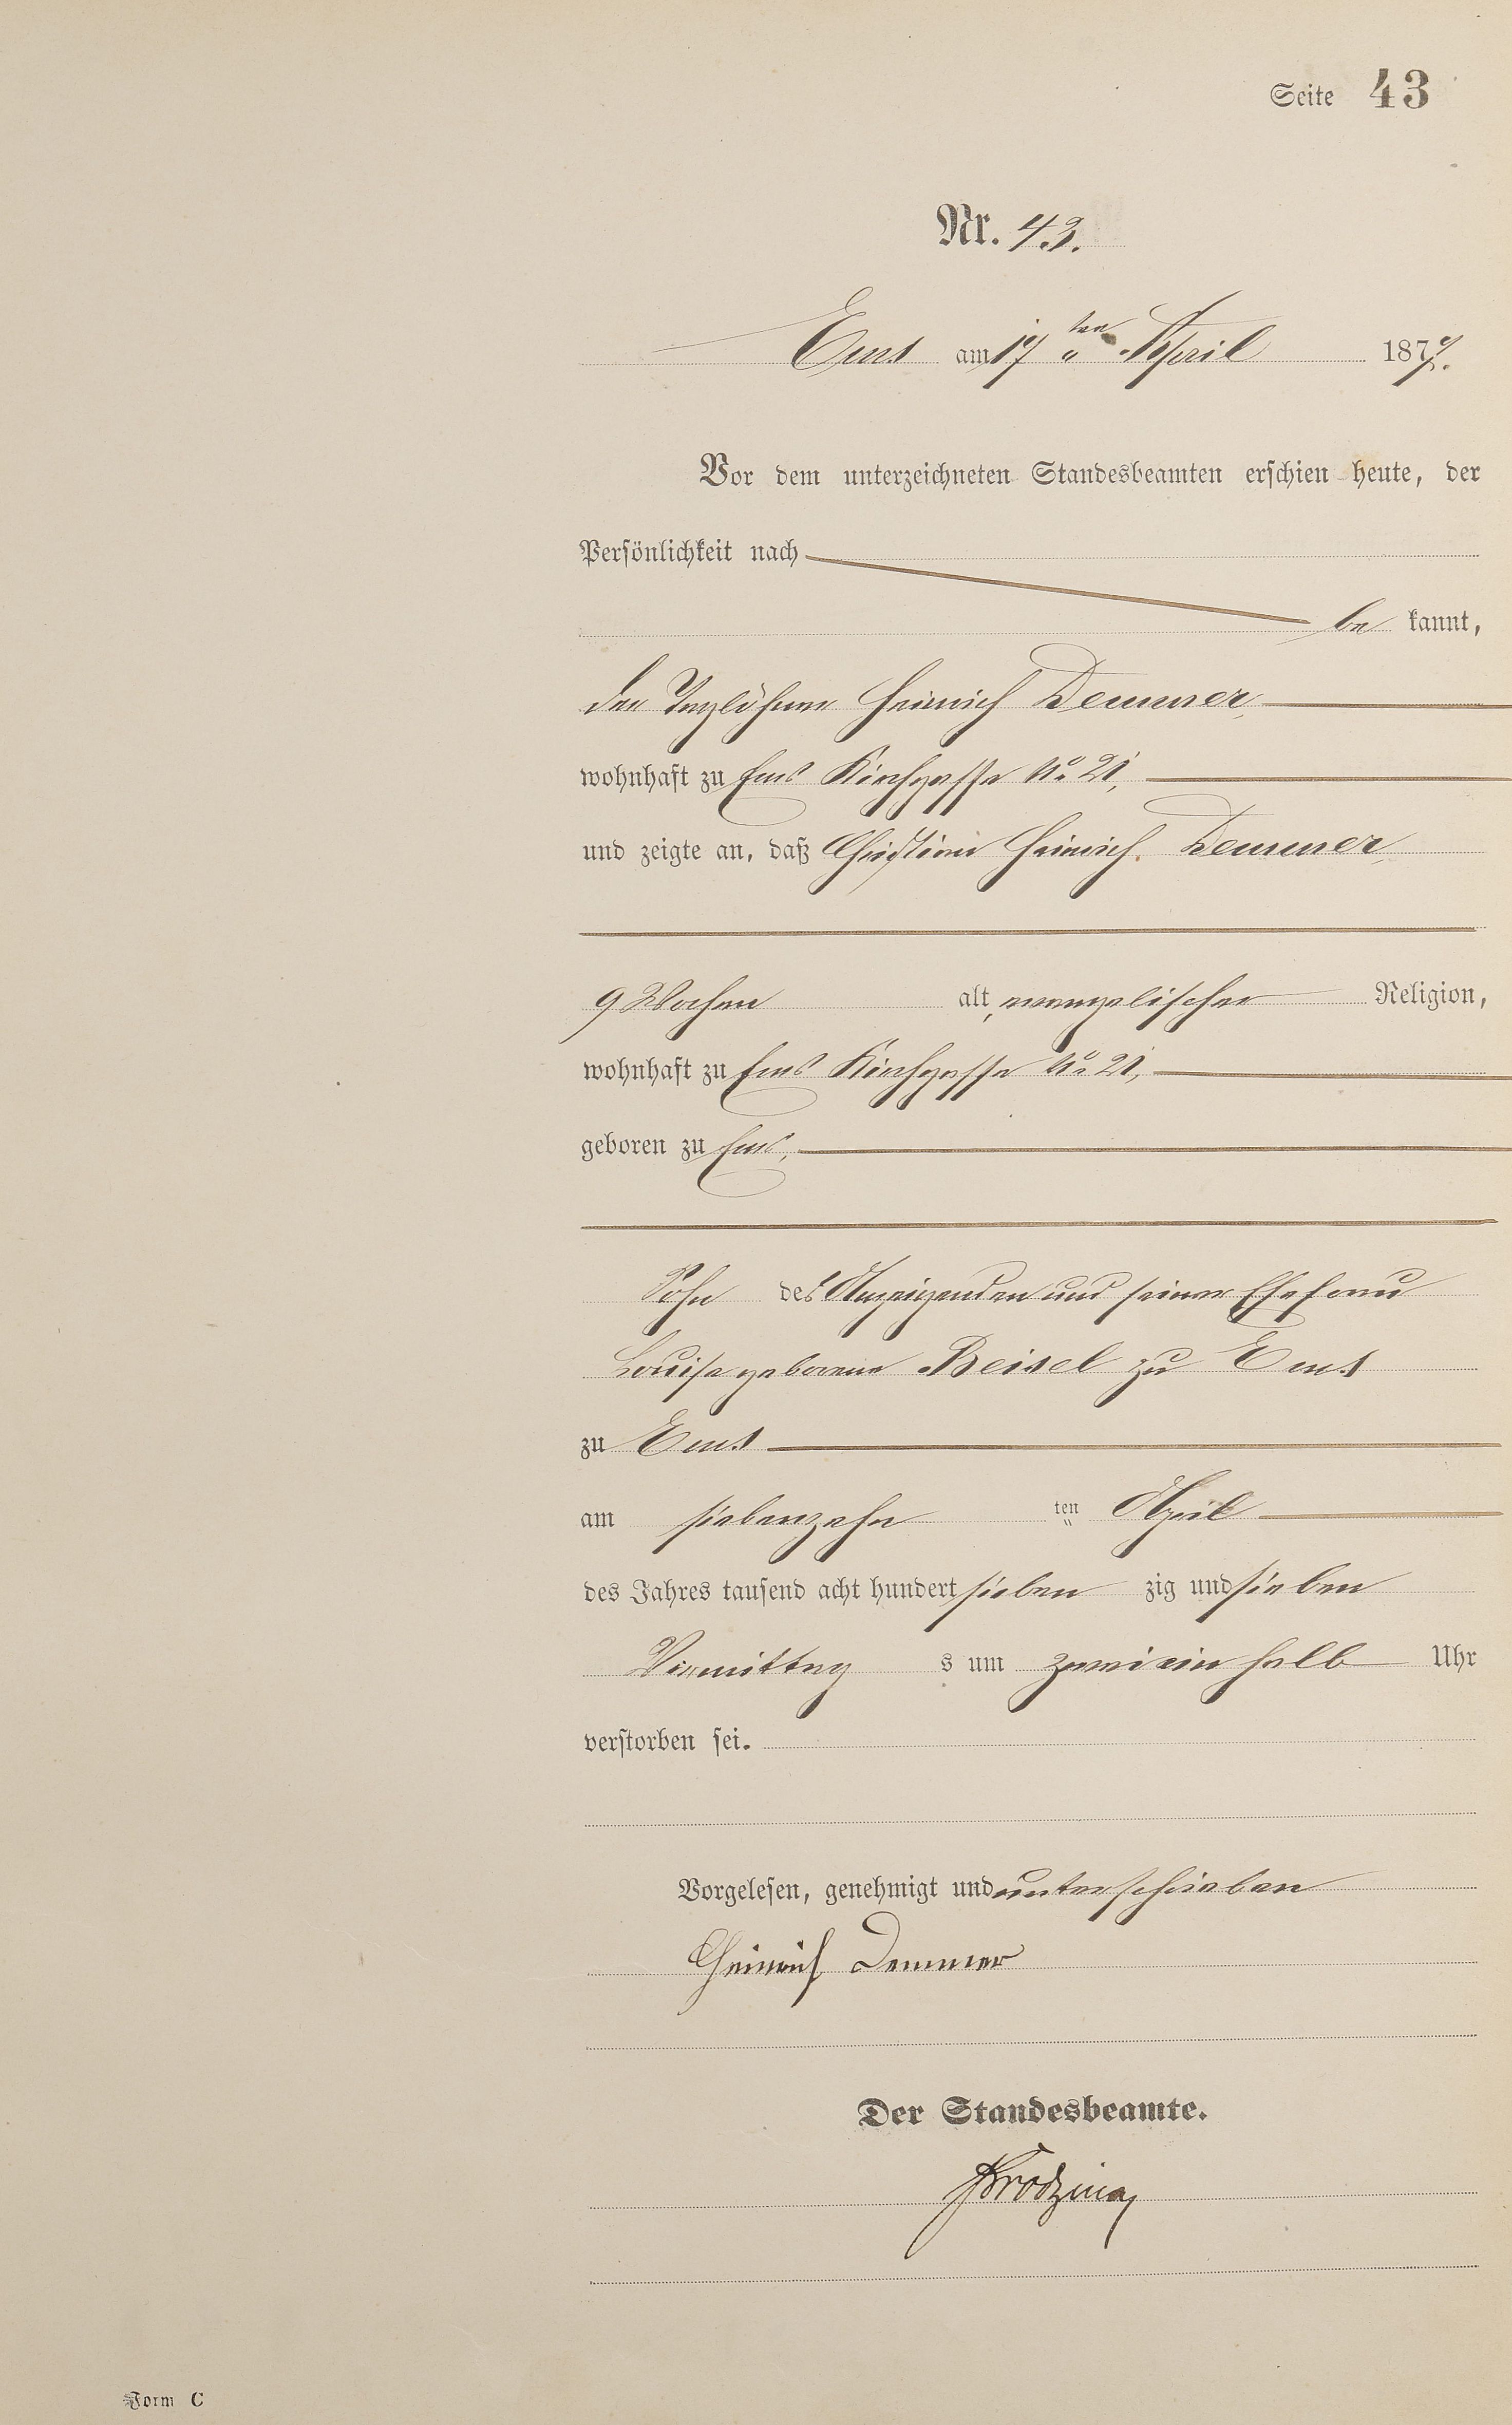 Seite 43
Nr. 43.
Ems am 17ten April 1877.
Vor dem unterzeichneten Standesbeamten erschien heute, der
Persönlichkeit nach
be kannt,
der Taglöhner Heinrich Demmer,
wohnhaft zu Ems Kirchgasse No 21,
und zeigte an, daß Christian Heinrich Demmer,
9 Wochen alt, evangelischer Religion,
wohnhaft zu Ems Kirchgasse No 21,
geboren zu Ems,
Sohn des Anzeigenden und seiner Ehefrau
Louise geborene Beisel zu Ems
zu Ems
am siebenzehn ten April
des Jahres tausend acht hundert sieben zig und sieben
Vormittag s um zwei ein halb Uhr
verstorben sei.
Vorgelesen, genehmigt und unterschrieben
Heinrich Demmer
Der Standesbeamte.
Form C